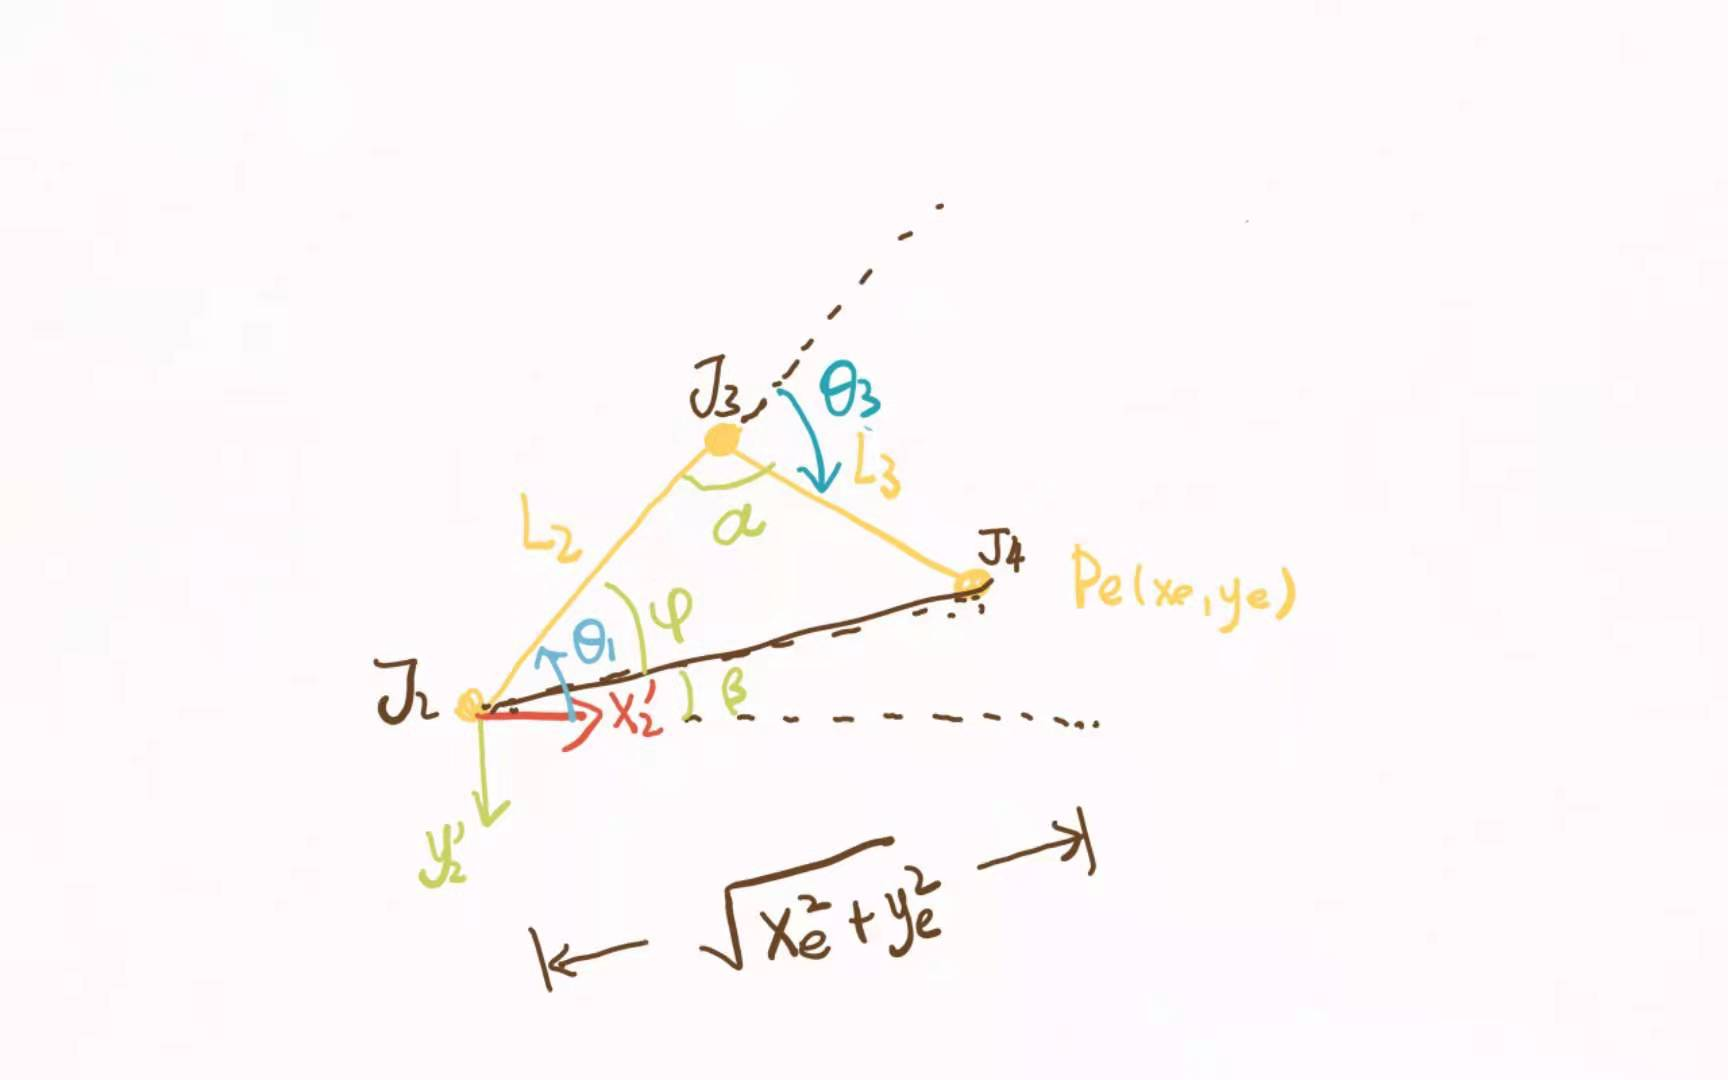 J₃
θ₃
L₃
L₂
α
J₄
Pe(xe,ye)
φ
θ₁
J₂
X₂'
β
y₂'
√xe²+ye²